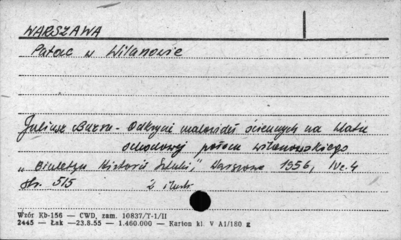 WARSZAWA
Pałac w Wilanowie
Juliusz Bursze - Odkrycie malowideł ściennych na klatce
schodowej pałacu wilanowskiego
„Biuletyn Historii Sztuki," Warszawa 1956, Nr. 4
str. 515 z ilustr.
Wzór Kb-156 — CWD, zam. 10837/T-1/II
2445 — Łsk — 23.8.55 — 1.460.000 — Karton kl. V A1/160 g